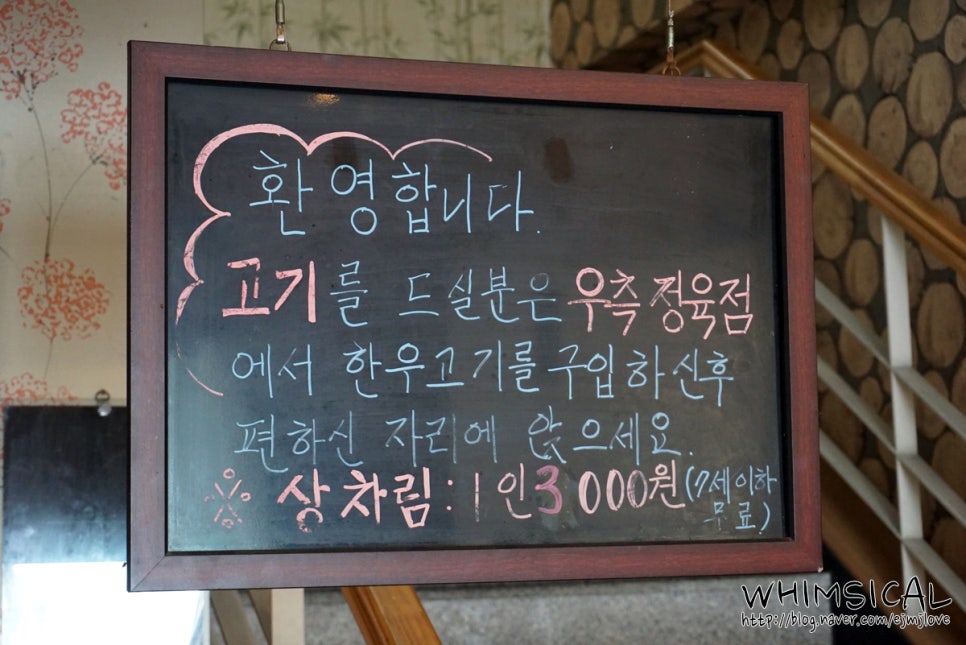 환영합니다.
고기를 드실분은 우측 정육점
에서 한우고기를 구입하신후
편하신 자리에 앉으세요.
※ 상차림 : 1인 3000원 (7세이하
무료)
WHIMSICAL
http://blog.naver.com/ejmjlove